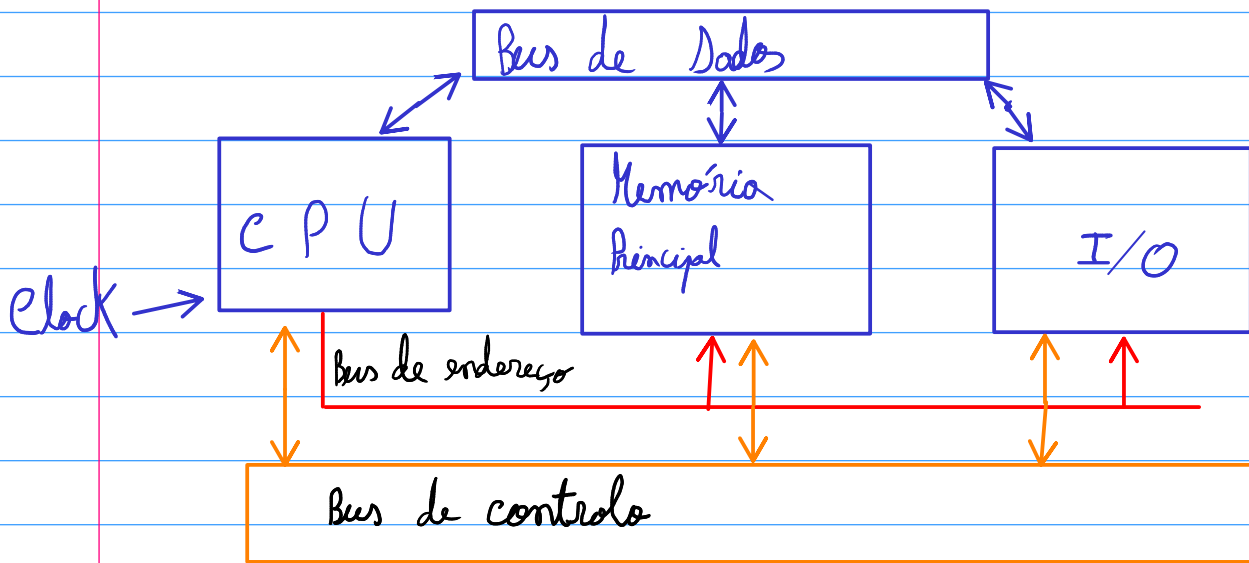 Bus de Dados
CPU
Memória
Principal
I/O
Clock
Bus de endereço
Bus de controlo